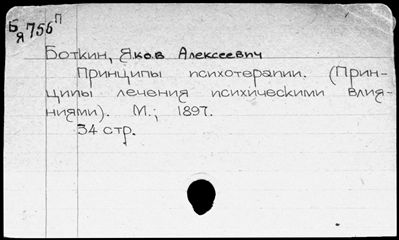 Б 756 П
Я
Боткин, Яков Алексеевич
Принципы психотерапии. (Прин-
ципы лечения психическими влия-
ниями). М.; 1897.
34 стр.